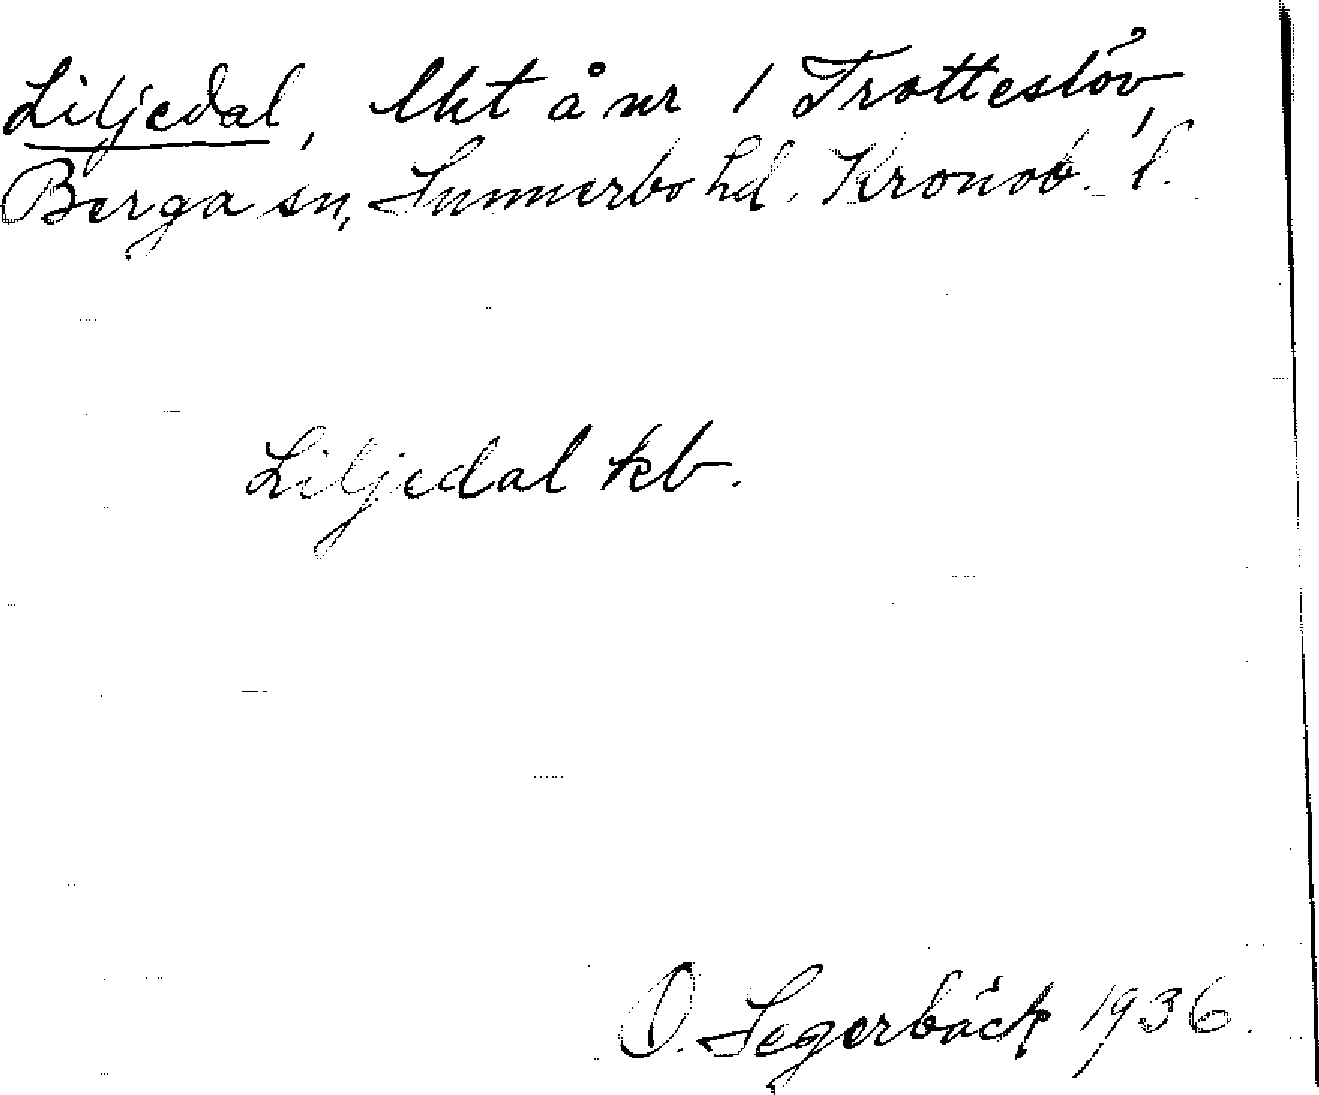 Liljedal, lht å nr 1 Trotteslöv,
Berga sn, Sunnerbo hd. Kronob. l.
Liljedal kb.
O. Segerbäck 1936.